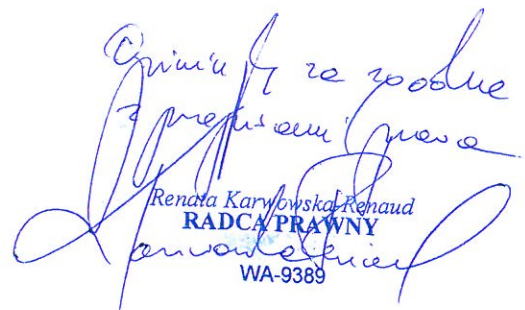 Opiniuję za zgodne
z przepisami prawa
Renata Karwowska-Renaud
RADCA PRAWNY
WA-9389